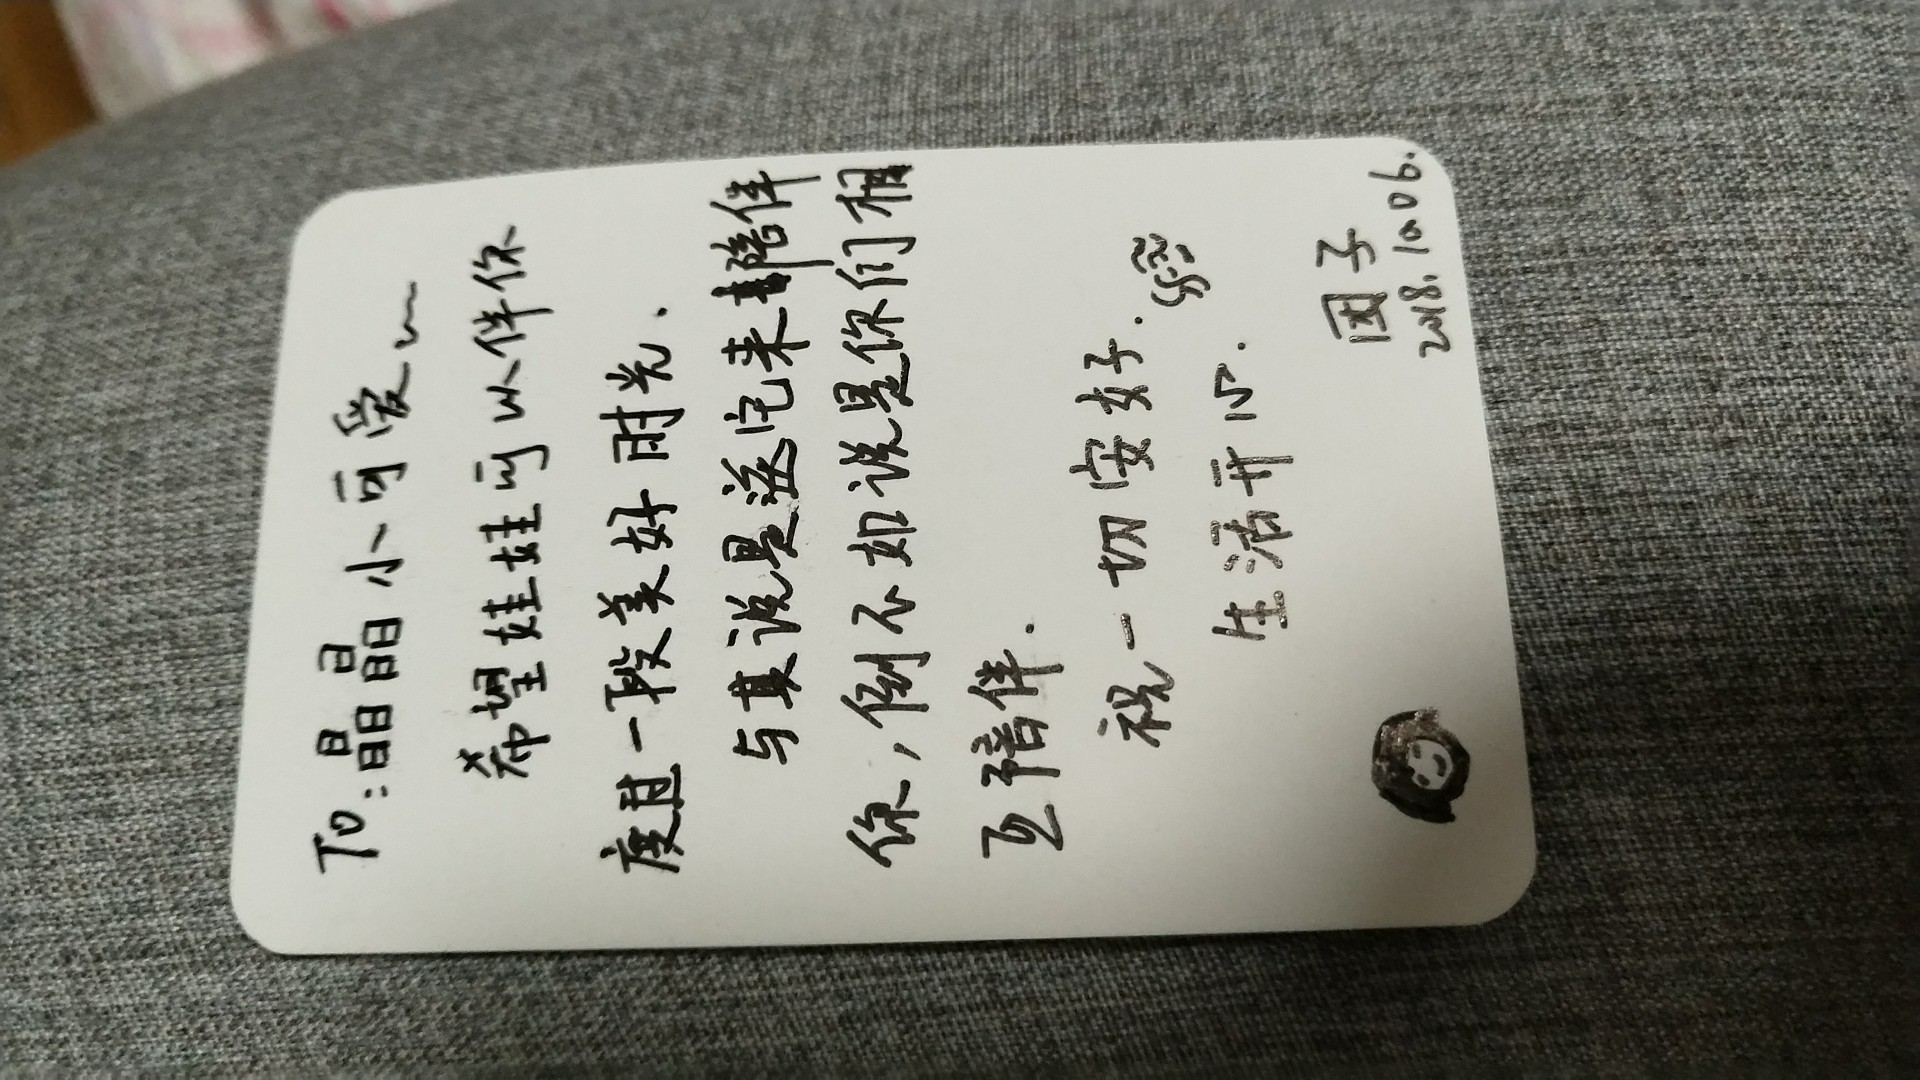 To:晶晶小可爱~
希望娃娃可以伴你
度过一段美好时光.
与其说是送它来陪伴
你,倒不如说是你们相
互陪伴.
祝一切安好.
生活开心.
团子
2018.10.06.